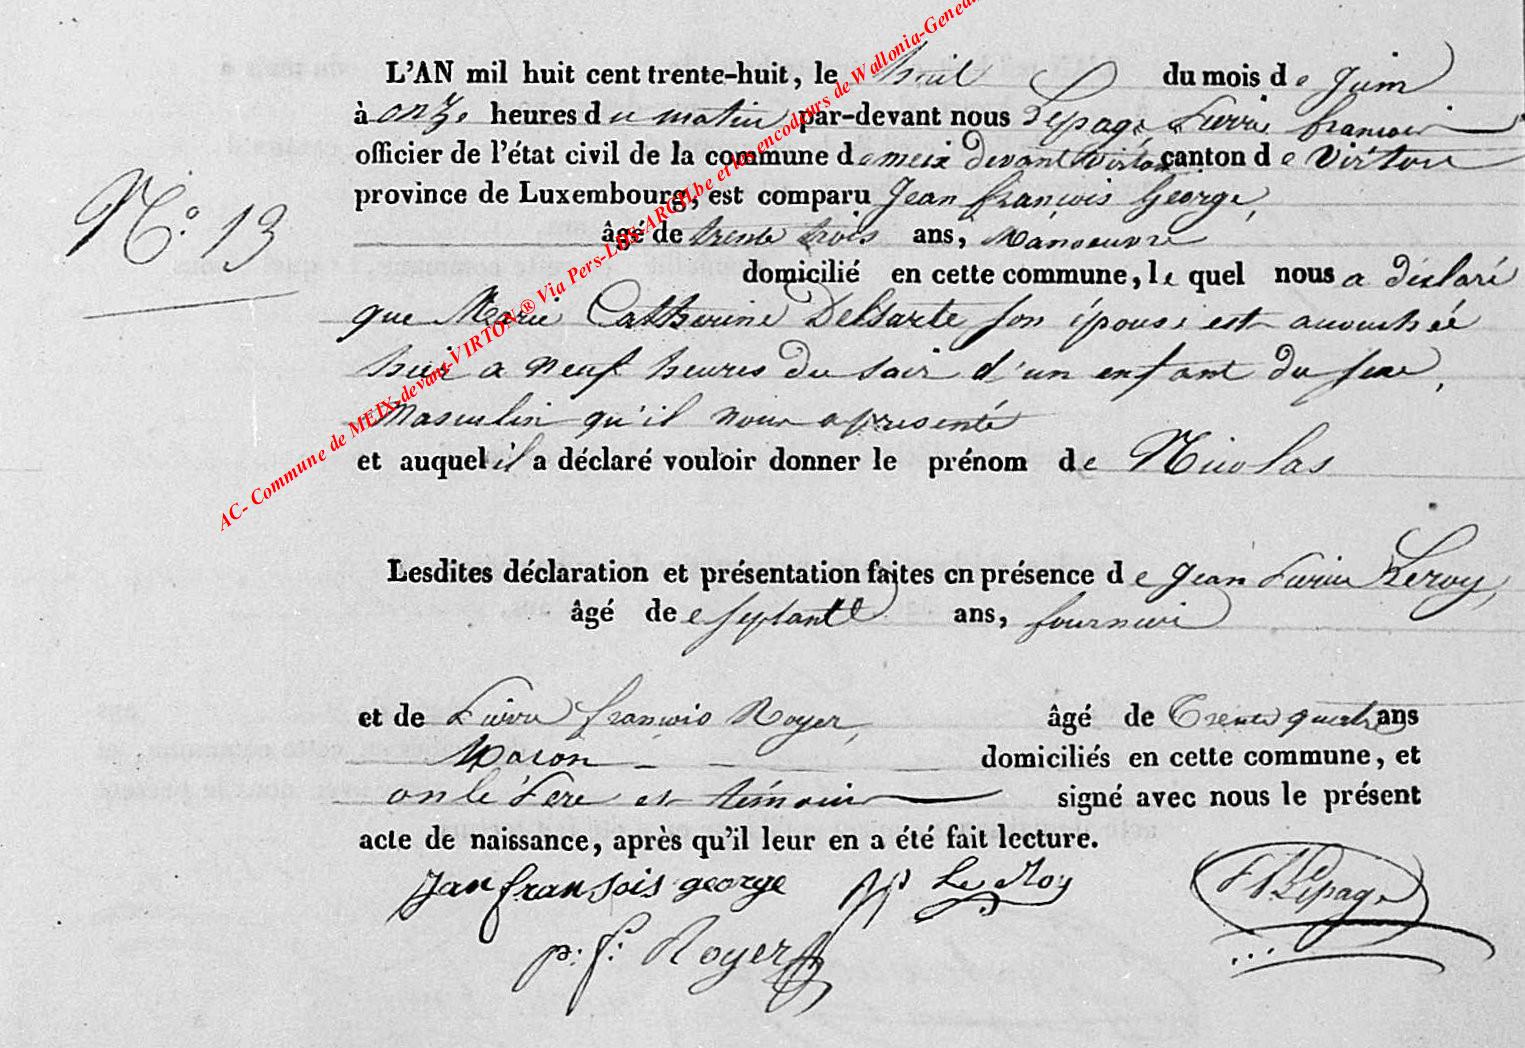 L'AN mil huit cent trente-huit, le huit du mois de Juin
à onze heures du matin par-devant nous Lepage Pierre françois
officier de l'état civil de la commune de meix devant Virton canton de Virton
province de Luxembourg, est comparu Jean françois George,
N.° 13
âgé de trente trois ans, Manoeuvre
domicilié en cette commune, le quel nous a déclaré
que Marie Catherine Delsarte son épouse est accouchée
hier a neuf heures du soir d'un enfant du sexe,
Masculin qu'il nous a presenté
et auquel il a déclaré vouloir donner le prénom de Nicolas
Lesdites déclaration et présentation faites en présence de Jean Pierre Leroy,
âgé de septante ans,
et de Pierre françois Royer, âgé de Trente quatre ans
Macon domiciliés en cette commune, et
on le Pere et témoins signé avec nous le présent
acte de naissance, après qu'il leur en a été fait lecture.
Jan fransois george JP Le Roy PF Lepage
p: f: Royer
AC- Commune de MEIX-devant-VIRTON ® Via Pers-LUX-ARCH.be et les encodeurs de Wallonia-Genea